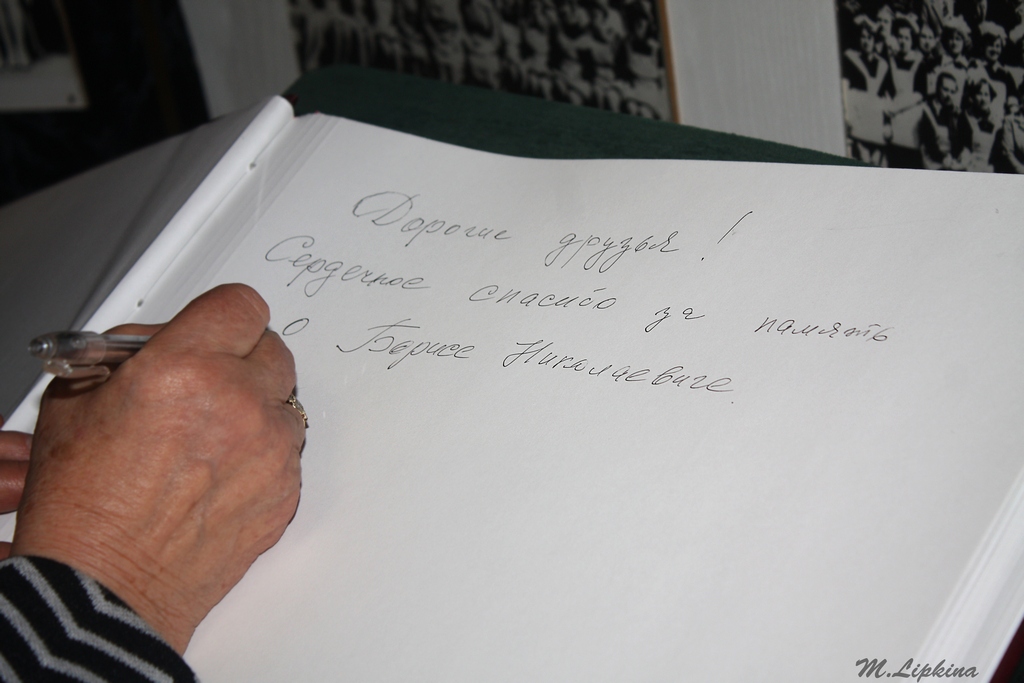 Дорогие друзья!
Сердечное спасибо за память
о Борисе Николаевиче.
M.Lipkina